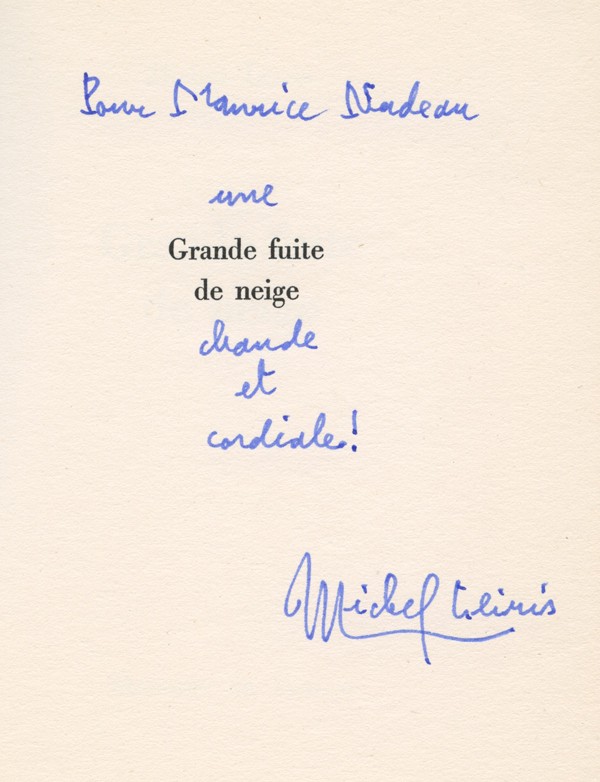 Pour Maurice Nadeau
une
Grande fuite
de neige
chaude
et
cordiale!
Michel Leiris